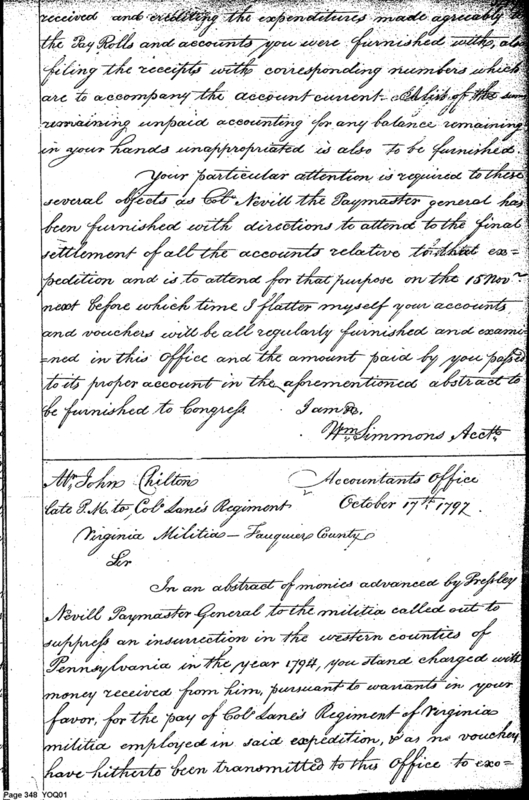 received and crediting the expenditures made agreeably to
the Pay Rolls and accounts you were furnished with, also
filing the receipts with corresponding numbers which
are to accompany the account current. A list of the sums
remaining unpaid accounting for any balance remaining
in your hands unappropriated is also to be furnished
Your particular attention is required to these
several objects as Colo. Nevill the Paymaster general has
been furnished with directions to attend to the final
settlement of all the accounts relative to that ex=
pedition and is to attend for that purpose on the 15 Novr.
next before which time I flatter myself your accounts
and vouchers will be all regularly furnished and exami
=ned in this Office and the amount paid by you passed
to its proper account in the aforementioned abstract to
be furnished to Congress. I am &c.
Wm. Simmons Acctt.
Mr. John Chilton Accountants Office
late P.M. to Colo. Lane's Regiment October 17th. 1797.
Virginia Militia - Fauquier County
Sir
In an abstract of monies advanced by Pressley
Nevill Paymaster General to the militia called out to
suppress an insurrection in the western counties of
Pennsylvania in the year 1794, you stand charged with
money received from him, pursuant to warrants in your
favor, for the pay of Colo. Lane's Regiment of Virginia
militia employed in said expedition, & as no vouchers
have hitherto been transmitted to this Office to exo=
Page 348 YOQ01